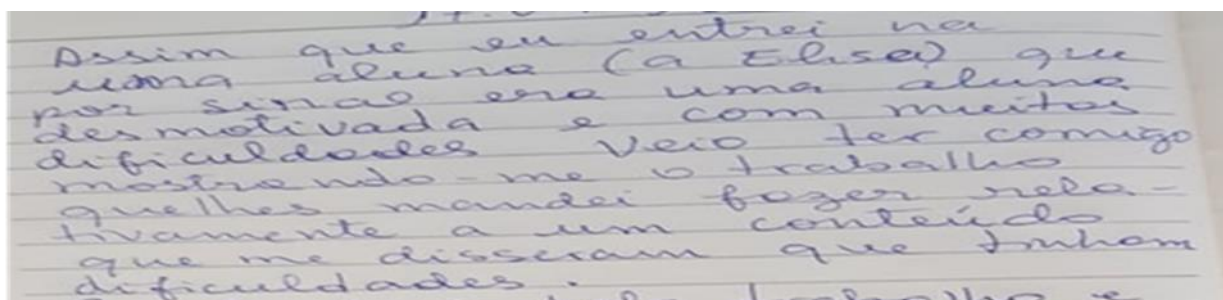 Assim que eu entrei na
uma aluna (a Elisa) que
por sinao era uma aluna
desmotivada e com muitos
dificuldades veio ter comigo
mostrando-me o trabalho
quelhes mandei fazer rela-
tivamente a um conteúdo
que me disseram que tinham
dificuldades.